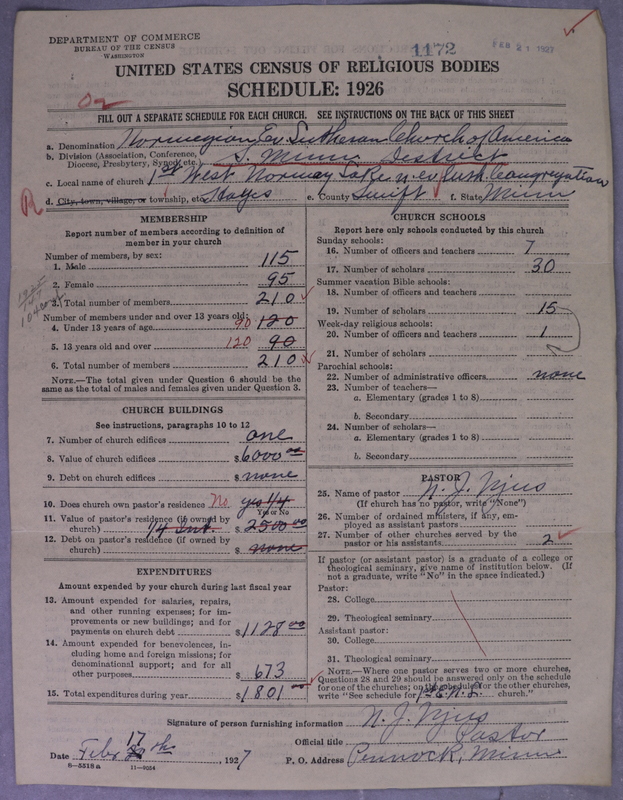 DEPARTMENT OF COMMERCE
BUREAU OF THE CENSUS
WASHINGTON
1172
FEB 21 1927
UNITED STATES CENSUS OF RELIGIOUS BODIES
SCHEDULE: 1926
FILL OUT A SEPARATE SCHEDULE FOR EACH CHURCH. SEE INSTRUCTIONS ON THE BACK OF THIS SHEET
a. Denomination Norwegian Ev. Lutheran Church of America
b. Division (Association, Conference, Diocese, Presbytery, Synod, etc.) S. Minn. District
c. Local name of church 1st West Norway Lake N. Ev. Luth. Congregation
d. City, town, village, or township, etc. Hayes e. County Swift f. State Minn
R
MEMBERSHIP
Report number of members according to definition of
member in your church
Number of members, by sex:
1. Male 115
2. Female 95
3. Total number of members 210
Number of members under and over 13 years old:
4. Under 13 years of age 90 120
5. 13 years old and over 120 90
6. Total number of members 210
NOTE.—The total given under Question 6 should be the
same as the total of males and females given under Question 3.
CHURCH BUILDINGS
See instructions, paragraphs 10 to 12
7. Number of church edifices one
8. Value of church edifices $6000 00
9. Debt on church edifices $ none
10. Does church own pastor's residence No yes 1/4
Yes or No
11. Value of pastor's residence (if owned by
church) 1/4 Int. $2500 00
12. Debt on pastor's residence (if owned by
church) $ none
EXPENDITURES
Amount expended by your church during last fiscal year
13. Amount expended for salaries, repairs,
and other running expenses; for im-
provements or new buildings; and for
payments on church debt $1128 00
14. Amount expended for benevolences, in-
cluding home and foreign missions; for
denominational support; and for all
other purposes $ 673
15. Total expenditures during year $1801
CHURCH SCHOOLS
Report here only schools conducted by this church
Sunday schools:
16. Number of officers and teachers 7
17. Number of scholars 30
Summer vacation Bible schools:
18. Number of officers and teachers
19. Number of scholars 15
Week-day religious schools:
20. Number of officers and teachers 1
21. Number of scholars
Parochial schools:
22. Number of administrative officers none
23. Number of teachers—
a. Elementary (grades 1 to 8)
b. Secondary
24. Number of scholars—
a. Elementary (grades 1 to 8)
b. Secondary
PASTOR
25. Name of pastor N. J. Njus
(If church has no pastor, write "None")
26. Number of ordained ministers, if any, em-
ployed as assistant pastors
27. Number of other churches served by the
pastor or his assistants 2
If pastor (or assistant pastor) is a graduate of a college or
theological seminary, give name of institution below. (If
not a graduate, write "No" in the space indicated.)
Pastor:
28. College
29. Theological seminary
Assistant pastor:
30. College
31. Theological seminary
NOTE.—Where one pastor serves two or more churches,
Questions 28 and 29 should be answered only on the schedule
for one of the churches; on the schedule for the other churches,
write "See schedule for church."
Signature of person furnishing information N. J. Njus
Official title Pastor
Date Febr 17 th, 1927
P. O. Address Pennock, Minn
8-5518a
11-9034